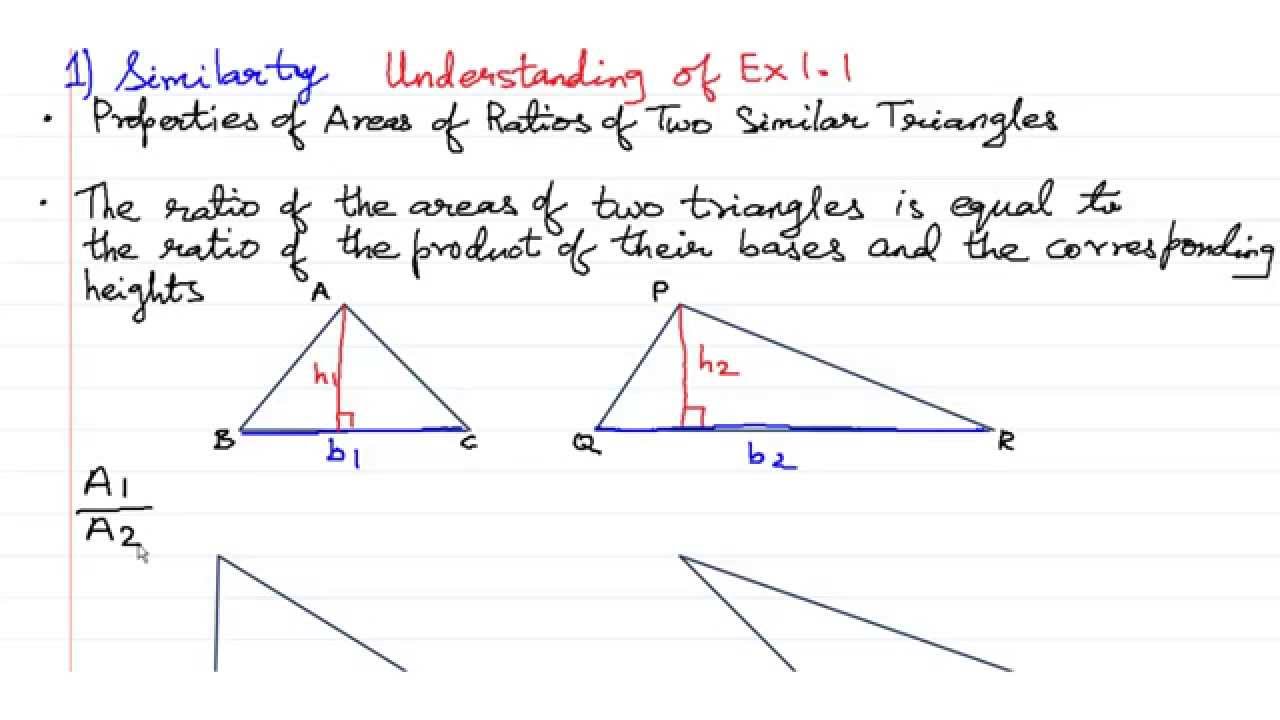 1) Similarty Understanding of Ex 1.1
• Properties of Areas of Ratios of Two Similar Triangles
• The ratio of the areas of two triangles is equal to
the ratio of the product of their bases and the corresponding
heights
A P
h1 h2
B C Q R
b1 b2
A1
A2